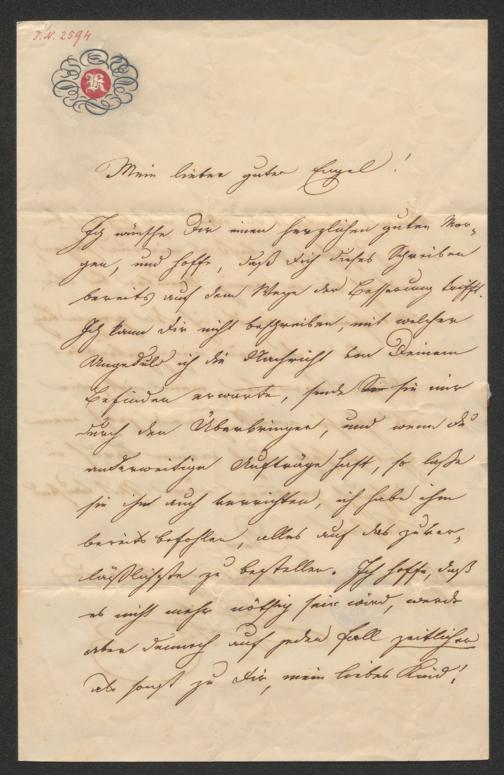 I.N. 2594
K
Mein lieber guter Engel!
Ich wünsche Dir einen herzlichen guten Mor-
gen, und hoffe, daß Dich dieses Schreiben
bereits auf dem Wege der Besserung trifft.
Ich kann Dir nicht beschreiben, mit welcher
Ungeduld ich die Nachricht von Deinem
Befinden erwarte, sende sie mir
durch den Überbringer, und wenn du
anderweitige Aufträge hast, so laße
sie ihm auch verrichten, ich habe ihm
bereits befohlen, alles auf das zuver-
läßlichste zu bestellen. Ich hoffe, daß
es nicht mehr nöthig sein wird, werde
aber dennoch auf jeden Fall zeitlicher
als sonst zu Dir, mein liebes Kind!